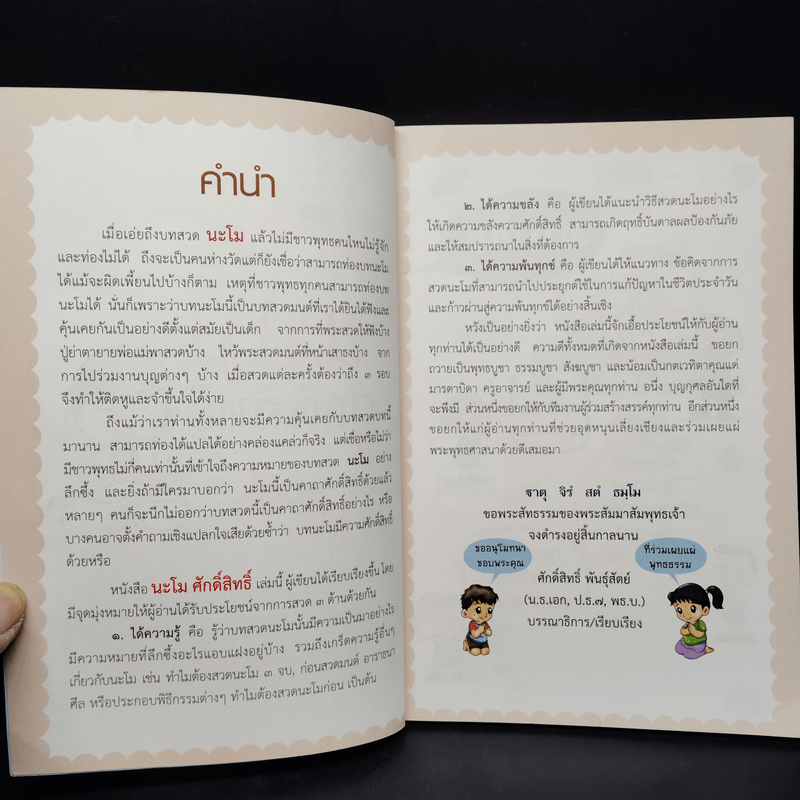 คำนำ
เมื่อเอ่ยถึงบทสวด นะโม แล้วไม่มีชาวพุทธคนไหนไม่รู้จัก
และท่องไม่ได้ ถึงจะเป็นคนห่างวัดแต่ก็ยังเชื่อว่าสามารถท่องบทนะโม
ได้แม้จะผิดเพี้ยนไปบ้างก็ตาม เหตุที่ชาวพุทธทุกคนสามารถท่องบท
นะโมได้ นั่นก็เพราะว่าบทนะโมนี้เป็นบทสวดมนต์ที่เราได้ยินได้ฟังและ
คุ้นเคยกันเป็นอย่างดีตั้งแต่สมัยเป็นเด็ก จากการที่พระสวดให้ฟังบ้าง
ปู่ย่าตายายพ่อแม่พาสวดบ้าง ไหว้พระสวดมนต์ที่หน้าเสาธงบ้าง จาก
การไปร่วมงานบุญต่างๆ บ้าง เมื่อสวดแต่ละครั้งต้องว่าถึง ๓ รอบ
จึงทำให้ติดหูและจำขึ้นใจได้ง่าย
ถึงแม้ว่าเราท่านทั้งหลายจะมีความคุ้นเคยกับบทสวดบทนี้
มานาน สามารถท่องได้แปลได้อย่างคล่องแคล่วก็จริง แต่เชื่อหรือไม่ว่า
มีชาวพุทธไม่กี่คนเท่านั้นที่เข้าใจถึงความหมายของบทสวด นะโม อย่าง
ลึกซึ้ง และยิ่งถ้ามีใครมาบอกว่า นะโมนี้เป็นคาถาศักดิ์สิทธิ์ด้วยแล้ว
หลายๆ คนก็จะนึกไม่ออกว่าบทสวดนี้เป็นคาถาศักดิ์สิทธิ์อย่างไร หรือ
บางคนอาจตั้งคำถามเชิงแปลกใจเสียด้วยซ้ำว่า บทนะโมมีความศักดิ์สิทธิ์
ด้วยหรือ
หนังสือ นะโม ศักดิ์สิทธิ์ เล่มนี้ ผู้เขียนได้เรียบเรียงขึ้น โดย
มีจุดมุ่งหมายให้ผู้อ่านได้รับประโยชน์จากการสวด ๓ ด้านด้วยกัน
๑. ได้ความรู้ คือ รู้ว่าบทสวดนะโมนั้นมีความเป็นมาอย่างไร
มีความหมายที่ลึกซึ้งอะไรแอบแฝงอยู่บ้าง รวมถึงเกร็ดความรู้อื่นๆ
เกี่ยวกับนะโม เช่น ทำไมต้องสวดนะโม ๓ จบ, ก่อนสวดมนต์ อาราธนา
ศีล หรือประกอบพิธีกรรมต่างๆ ทำไมต้องสวดนะโมก่อน เป็นต้น
๒. ได้ความขลัง คือ ผู้เขียนได้แนะนำวิธีสวดนะโมอย่างไร
ให้เกิดความขลังความศักดิ์สิทธิ์ สามารถเกิดฤทธิ์บันดาลผลป้องกันภัย
และให้สมปรารถนาในสิ่งที่ต้องการ
๓. ได้ความพ้นทุกข์ คือ ผู้เขียนได้ให้แนวทาง ข้อคิดจากการ
สวดนะโมที่สามารถนำไปประยุกต์ใช้ในการแก้ปัญหาในชีวิตประจำวัน
และก้าวผ่านสู่ความพ้นทุกข์ได้อย่างสิ้นเชิง
หวังเป็นอย่างยิ่งว่า หนังสือเล่มนี้จักเอื้อประโยชน์ให้กับผู้อ่าน
ทุกท่านได้เป็นอย่างดี ความดีทั้งหมดที่เกิดจากหนังสือเล่มนี้ ขอยก
ถวายเป็นพุทธบูชา ธรรมบูชา สังฆบูชา และน้อมเป็นกตเวทิตาคุณแด่
มารดาบิดา ครูอาจารย์ และผู้มีพระคุณทุกท่าน อนึ่ง บุญกุศลอันใดที่
จะพึงมี ส่วนหนึ่งขอยกให้กับทีมงานผู้ร่วมสร้างสรรค์ทุกท่าน อีกส่วนหนึ่ง
ขอยกให้แก่ผู้อ่านทุกท่านที่ช่วยอุดหนุนเลี่ยงเชียงและร่วมเผยแผ่
พระพุทธศาสนาด้วยดีเสมอมา
ฐาตุ จิรํ สตํ ธมฺโม
ขอพระสัทธรรมของพระสัมมาสัมพุทธเจ้า
จงดำรงอยู่สิ้นกาลนาน
ขออนุโมทนา
ขอบพระคุณ
ที่ร่วมเผยแผ่
พุทธธรรม
ศักดิ์สิทธิ์ พันธุ์สัตย์
(น.ธ.เอก, ป.ธ.๗, พธ.บ.)
บรรณาธิการ/เรียบเรียง